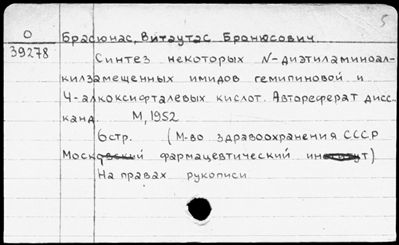 5
О
39278
Брасюнас, Витаутас Бронюсович.
Синтез некоторых N-диэтиламиноал-
килзамещенных имидов гемипиновой и
4-алкоксифталевых кислот. Автореферат дисс.
канд. М, 1952
6стр. (М-во здравоохранения СССР
Московский фармацевтический институт)
На правах рукописи